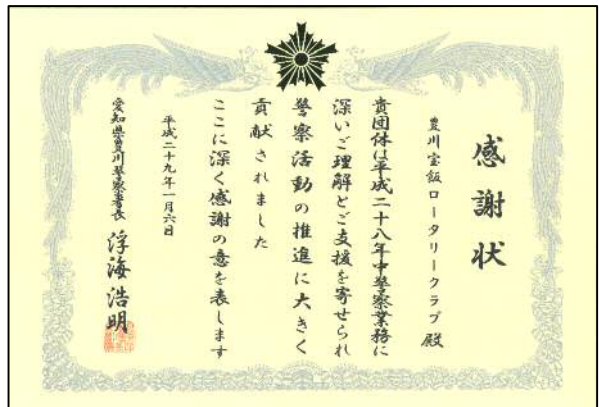 感謝状
豊川宝飯ロータリークラブ殿
貴団体は平成二十八年中警察業務に
深いご理解とご支援を寄せられ
警察活動の推進に大きく
貢献されました
ここに深く感謝の意を表します
平成二十九年一月六日
愛知県豊川警察署長 浮海浩明